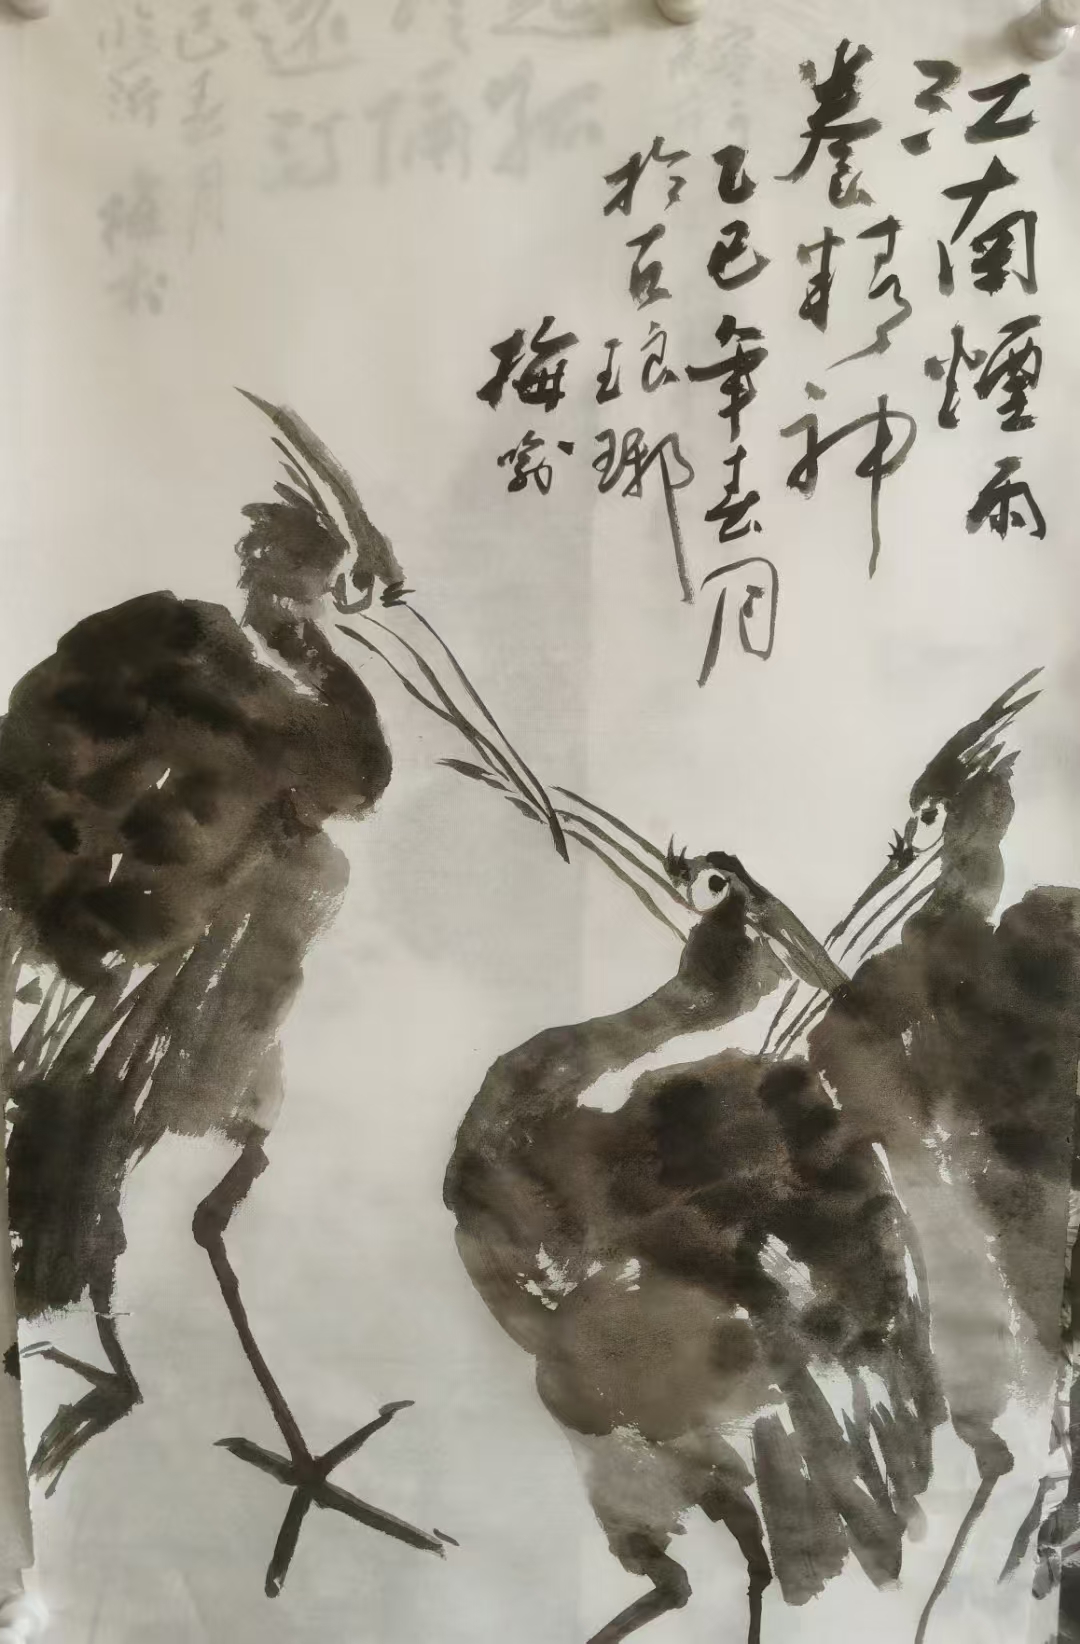 江南煙雨
養精神
乙巳年春月
於古琅琊
梅